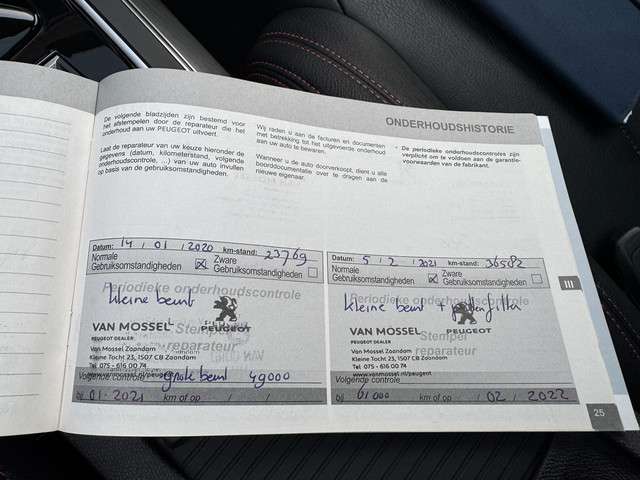 ONDERHOUDSHISTORIE
De volgende bladzijden zijn bestemd voor
het afstempelen door de reparateur die het
onderhoud aan uw PEUGEOT uitvoert.
Laat de reparateur van uw keuze hieronder de
gegevens (datum, kilometerstand, volgende
onderhoudscontrole, ...) van uw auto invullen
op basis van de gebruiksomstandigheden.
Wij raden u aan de facturen en documenten
met betrekking tot het uitgevoerde onderhoud
aan uw auto te bewaren.
Wanneer u de auto doorverkoopt, dient u alle
boorddocumentatie over te dragen aan de
nieuwe eigenaar.
- De periodieke onderhoudscontroles zijn
verplicht om te voldoen aan de garantie-
voorwaarden van de fabrikant.
Datum: 14 / 01 / 2020 km-stand: 23769
Normale
Gebruiksomstandigheden
Zware
Gebruiksomstandigheden
Periodieke onderhoudscontrole
kleine beurt
VAN MOSSEL
PEUGEOT
PEUGEOT DEALER
Stempel
reparateur
Van Mossel Zaandam
Kleine Tocht 23, 1507 CB Zaandam
Tel 075 - 616 00 74
www.vanmossel.nl/peugeot
Volgende controle grote beurt 49000
bij 01-2021 km of op / /
Datum: 5 / 2 / 2021 km-stand: 36582
Normale
Gebruiksomstandigheden
Zware
Gebruiksomstandigheden
Periodieke onderhoudscontrole
kleine beurt +
VAN MOSSEL
PEUGEOT
PEUGEOT DEALER
Stempel
reparateur
Van Mossel Zaandam
Kleine Tocht 23, 1507 CB Zaandam
Tel 075 - 616 00 74
www.vanmossel.nl/peugeot
Volgende controle
bij 61000 km of op / 02 / 2022
III
25